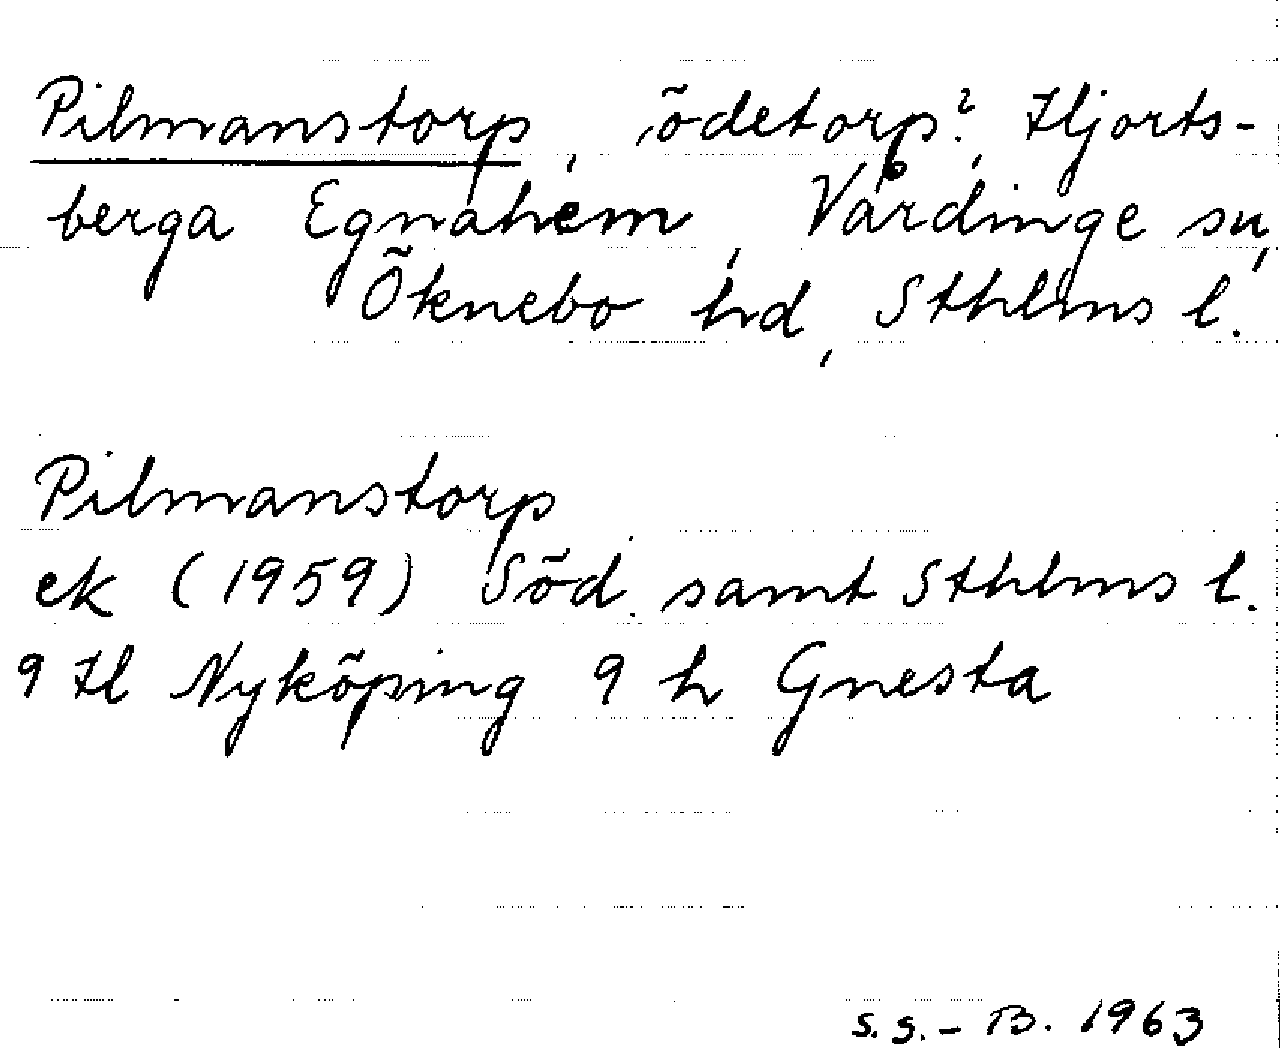 Pilmanstorp, ödetorp?, Hjorts-
berga Egnahem, Vårdinge sn,
Öknebo hd, Sthlms l.
Pilmanstorp
ek (1959) Söd. samt Sthlms l.
9 H Nyköping 9 h Gnesta
S.S.-B. 1963